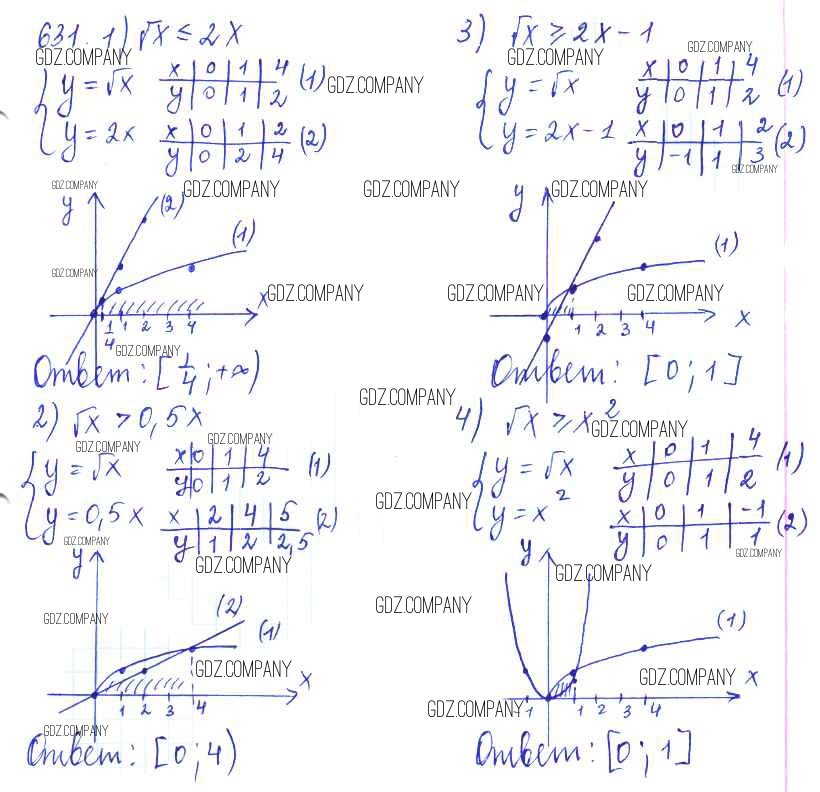 631. 1) √x ≤ 2x
GDZ.COMPANY
{ y = √x
x | 0 | 1 | 4
y | 0 | 1 | 2
(1)
GDZ.COMPANY
y = 2x
x | 0 | 1 | 2
y | 0 | 2 | 4
(2)
GDZ.COMPANY
GDZ.COMPANY
GDZ.COMPANY
y
(2)
(1)
GDZ.COMPANY
x
GDZ.COMPANY
1/4 1 2 3 4
GDZ.COMPANY
Ответ: [1/4; +∞)
GDZ.COMPANY
2) √x > 0,5x
GDZ.COMPANY
GDZ.COMPANY
{ y = √x
x | 0 | 1 | 4
y | 0 | 1 | 2
(1)
GDZ.COMPANY
y = 0,5x
x | 2 | 4 | 5
y | 1 | 2 | 2,5
(2)
GDZ.COMPANY
GDZ.COMPANY
y
(2)
(1)
GDZ.COMPANY
GDZ.COMPANY
GDZ.COMPANY
x
1 2 3 4
GDZ.COMPANY
Ответ: [0; 4)
3) √x ≥ 2x - 1
GDZ.COMPANY
{ y = √x
x | 0 | 1 | 4
y | 0 | 1 | 2
(1)
y = 2x - 1
x | 0 | 1 | 2
y | -1 | 1 | 3
(2)
GDZ.COMPANY
GDZ.COMPANY
y
(1)
GDZ.COMPANY
GDZ.COMPANY
x
1 2 3 4
Ответ: [0; 1]
4) √x ≥ x²
GDZ.COMPANY
{ y = √x
x | 0 | 1 | 4
y | 0 | 1 | 2
(1)
y = x²
x | 0 | 1 | -1
y | 0 | 1 | 1
(2)
GDZ.COMPANY
y
GDZ.COMPANY
(1)
GDZ.COMPANY
x
GDZ.COMPANY
-1 1 2 3 4
Ответ: [0; 1]